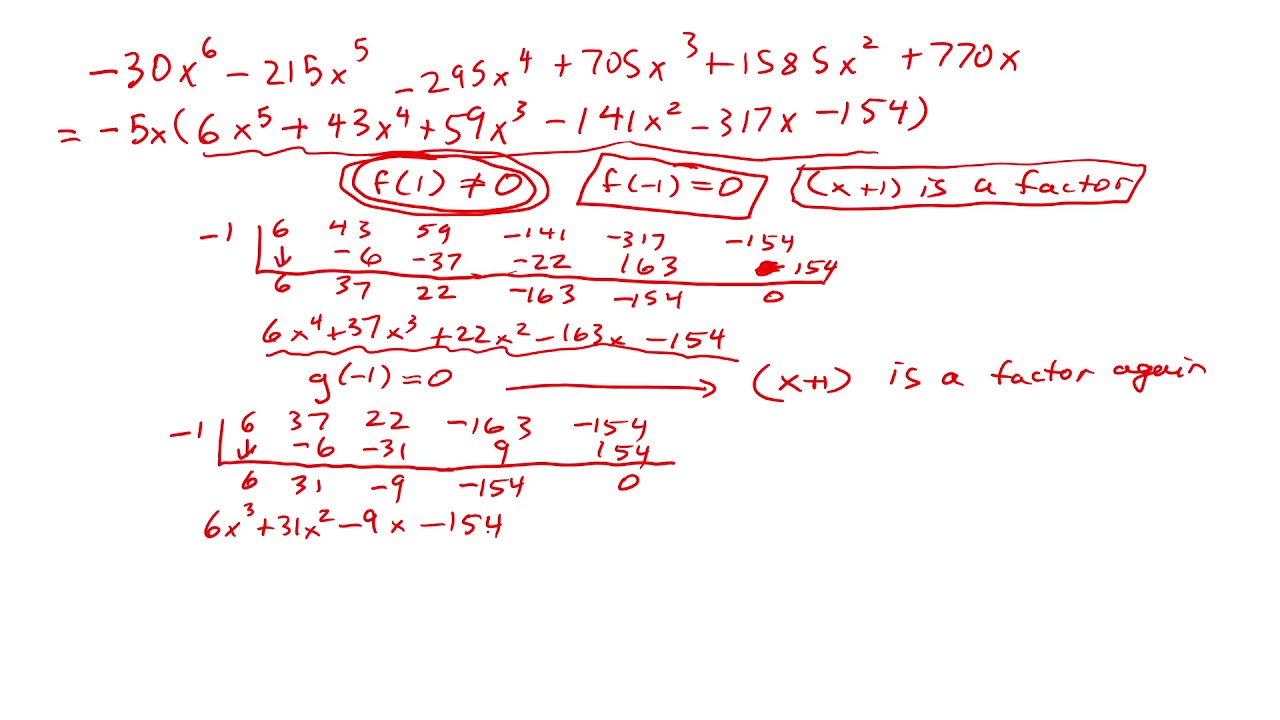 -30x⁶ - 215x⁵ - 295x⁴ + 705x³ + 1585x² + 770x
= -5x(6x⁵ + 43x⁴ + 59x³ - 141x² - 317x - 154)
f(1) ≠ 0 f(-1) = 0 (x+1) is a factor
-1 | 6 43 59 -141 -317 -154
↓ -6 -37 -22 163 154
6 37 22 -163 -154 0
6x⁴ + 37x³ + 22x² - 163x - 154
g(-1) = 0 → (x+1) is a factor again
-1 | 6 37 22 -163 -154
↓ -6 -31 9 154
6 31 -9 -154 0
6x³ + 31x² - 9x - 154